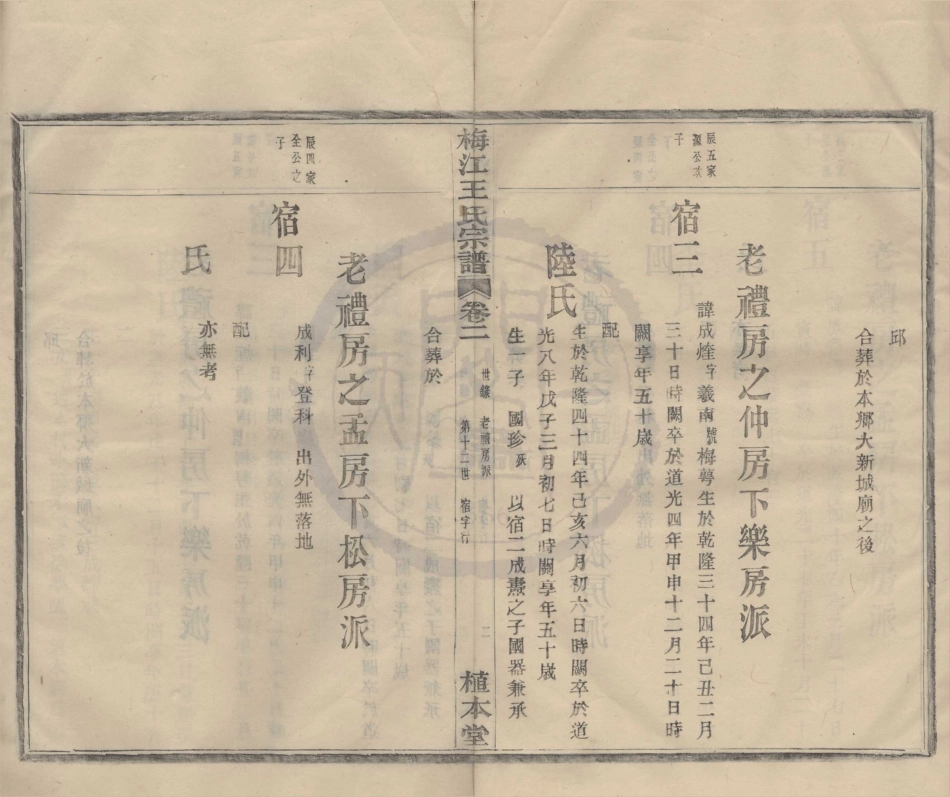 邱
合葬於本鄉大新城廟之後
老禮房之仲房下樂房派
辰五家
公次
子
宿三
諱成煃字羲南號梅蕚生於乾隆三十四年己丑二月
三十日時闕卒於道光四年甲申十二月二十日時
闕享年五十歲
配
陸氏
生於乾隆四十四年己亥六月初六日時闕卒於道
光八年戊子三月初七日時闕享年五十歲
生一子 國珍殀 以宿二成燾之子國器兼承
梅江王氏宗譜 卷二
世錄 老禮房派
第十二世 宿字行
二
植本堂
合葬於
老禮房之孟房下松房派
辰四家
全公之
子
宿四
成利字登科 出外無落地
配
氏
亦無考